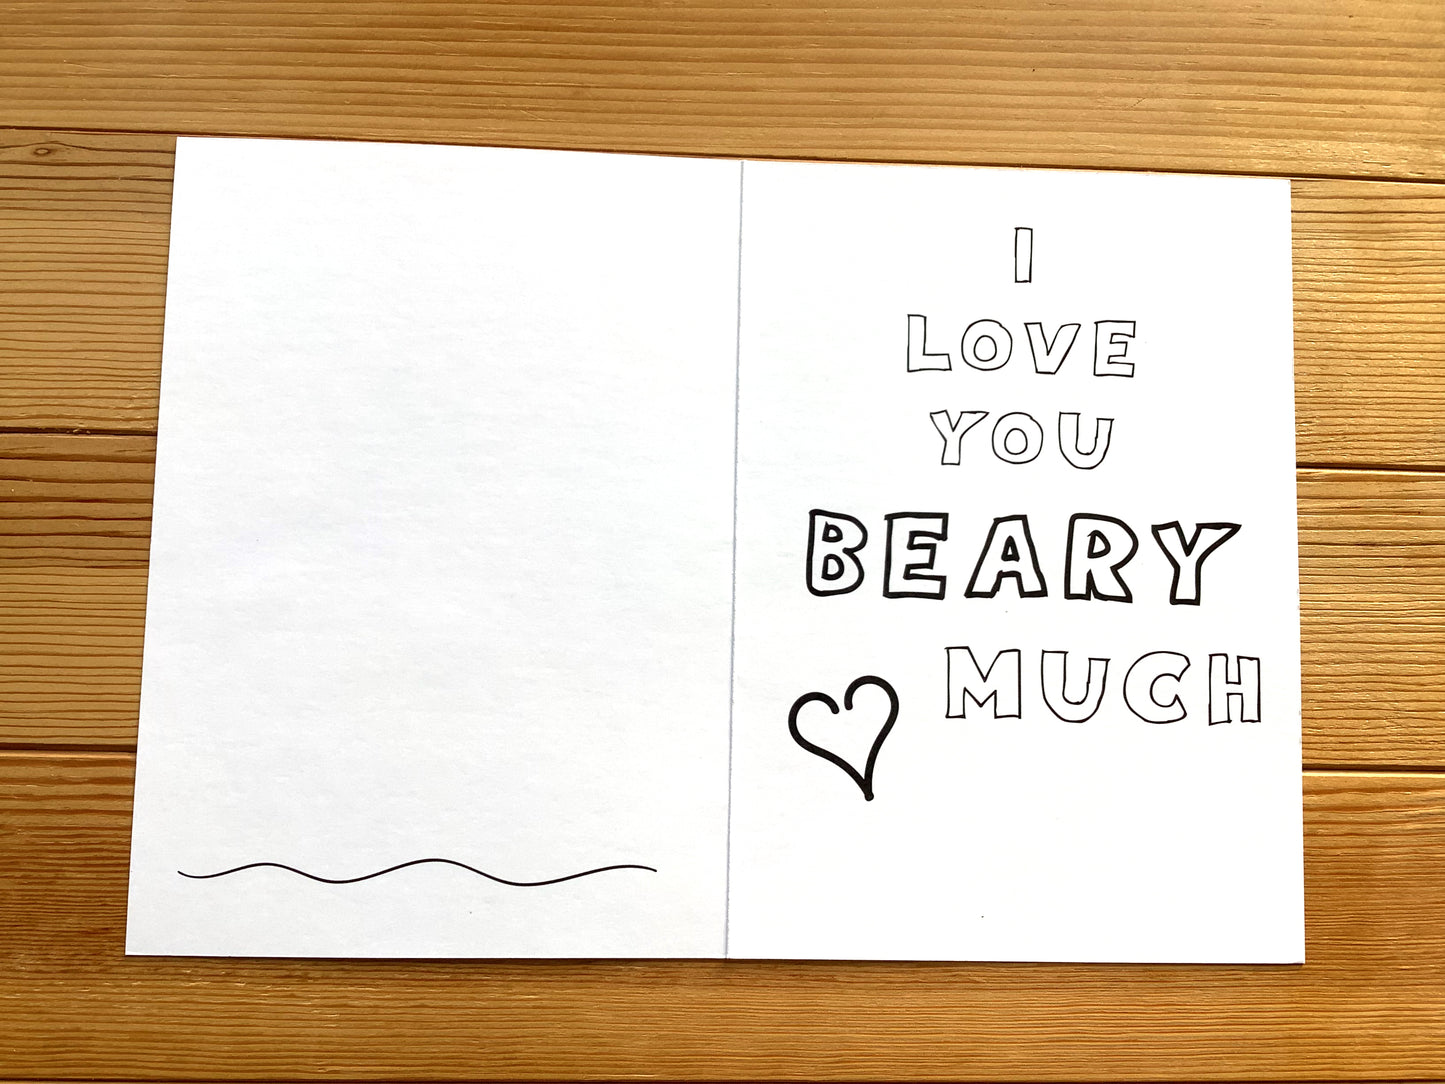 I
LOVE
YOU
BEARY
MUCH